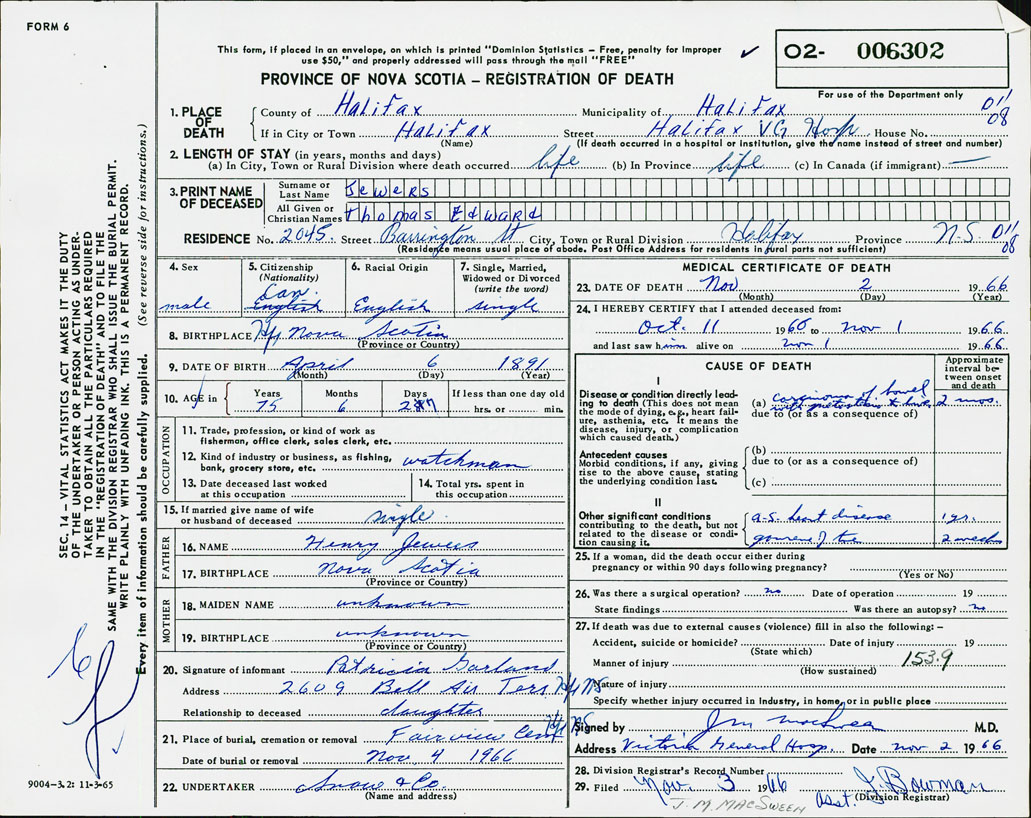 FORM 6
This form, if placed in an envelope, on which is printed "Dominion Statistics – Free, penalty for improper
use $50," and properly addressed will pass through the mail "FREE"
✓
O2- 006302
PROVINCE OF NOVA SCOTIA – REGISTRATION OF DEATH
For use of the Department only
1. PLACE OF DEATH
County of Halifax Municipality of Halifax D11 08
If in City or Town Halifax Street Halifax VG Hosp House No.
(Name) (If death occurred in a hospital or institution, give the name instead of street and number)
2. LENGTH OF STAY (in years, months and days)
(a) In City, Town or Rural Division where death occurred life (b) In Province life (c) In Canada (if immigrant) —
3. PRINT NAME OF DECEASED
Surname or Last Name Jewers
All Given or Christian Names Thomas Edward
RESIDENCE No. 2045 Street Barrington St City, Town or Rural Division Halifax Province N.S. D11 08
(Residence means usual place of abode. Post Office Address for residents in rural parts not sufficient)
4. Sex male
5. Citizenship (Nationality) Can. english
6. Racial Origin English
7. Single, Married, Widowed or Divorced (write the word) single
8. BIRTHPLACE Hfx Nova Scotia
(Province or Country)
9. DATE OF BIRTH April 6 1891
(Month) (Day) (Year)
10. AGE in Years 75 Months 6 Days 27 If less than one day old hrs. or min.
OCCUPATION
11. Trade, profession, or kind of work as fisherman, office clerk, sales clerk, etc.
12. Kind of industry or business, as fishing, bank, grocery store, etc. watchman
13. Date deceased last worked at this occupation
14. Total yrs. spent in this occupation
15. If married give name of wife or husband of deceased single
FATHER
16. NAME Henry Jewers
17. BIRTHPLACE Nova Scotia
(Province or Country)
MOTHER
18. MAIDEN NAME unknown
19. BIRTHPLACE unknown
(Province or Country)
20. Signature of informant Patricia Garland
Address 2609 Bell Air Terr Hfx NS
Relationship to deceased daughter
21. Place of burial, cremation or removal Fairview Cem Hfx NS
Date of burial or removal Nov. 4 1966
22. UNDERTAKER Snow & Co.
(Name and address)
MEDICAL CERTIFICATE OF DEATH
23. DATE OF DEATH Nov 2 1966
(Month) (Day) (Year)
24. I HEREBY CERTIFY that I attended deceased from:
Oct. 11 1966 to Nov 1 1966
and last saw him alive on Nov 1 1966
CAUSE OF DEATH
Approximate interval between onset and death
I
Disease or condition directly leading to death (This does not mean the mode of dying, e.g., heart failure, asthenia, etc. It means the disease, injury, or complication which caused death.)
(a) carcinoma of bowel with metastases to liver 2 mos.
due to (or as a consequence of)
Antecedent causes
Morbid conditions, if any, giving rise to the above cause, stating the underlying condition last.
(b)
due to (or as a consequence of)
(c)
II
Other significant conditions contributing to the death, but not related to the disease or condition causing it.
a-s. heart disease 1 yr.
2 weeks
25. If a woman, did the death occur either during pregnancy or within 90 days following pregnancy?
(Yes or No)
26. Was there a surgical operation? no Date of operation 19
State findings Was there an autopsy? no
27. If death was due to external causes (violence) fill in also the following:–
Accident, suicide or homicide? Date of injury 19
(State which)
Manner of injury 153.9
(How sustained)
Nature of injury
Specify whether injury occurred in industry, in home, or in public place
Signed by J M MacSween M.D.
Address Victoria General Hosp. Date Nov 2 1966
28. Division Registrar's Record Number
29. Filed Nov. 3 1966 Asst. J. Bowman
(Division Registrar)
J. M. MACSWEEN
SEC. 14 – VITAL STATISTICS ACT MAKES IT THE DUTY
OF THE UNDERTAKER OR PERSON ACTING AS UNDER-
TAKER TO OBTAIN ALL THE PARTICULARS REQUIRED
IN THE "REGISTRATION OF DEATH" AND TO FILE THE
SAME WITH THE DIVISION REGISTRAR WHO SHALL ISSUE THE BURIAL PERMIT.
WRITE PLAINLY WITH UNFADING INK. THIS IS A PERMANENT RECORD.
Every item of information should be carefully supplied. (See reverse side for instructions.)
9004-3.2: 11-3-65